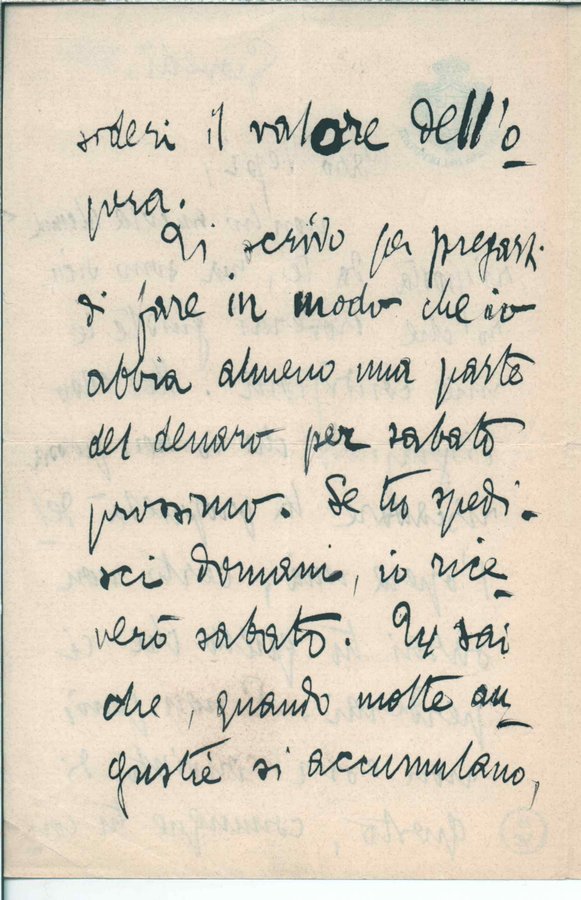 sideri il valore dell'o
pera.
Ti scrivo per pregarti
di fare in modo che io
abbia almeno una parte
del denaro per sabato
prossimo. Se tu spedi-
sci domani, io rice-
verò sabato. Tu sai
che, quando molte an-
gustie si accumulano,